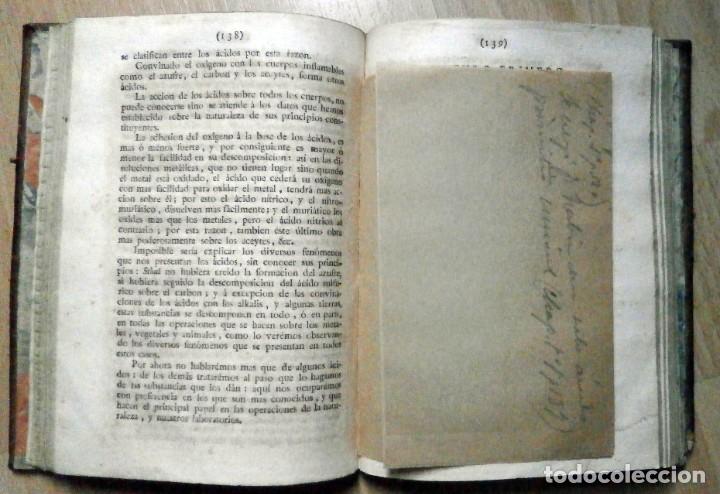 (138)
se clasifican entre los ácidos por esta razon.
Convinado el oxîgeno con los cuerpos inflamables
como el azufre, el carbon y los aceytes, forma otros
ácidos.
La accion de los ácidos sobre todos los cuerpos, no
puede conocerse sino se atiende á los datos que hemos
establecido sobre la naturaleza de sus principios cons-
tituyentes.
La adhesion del oxîgeno á la base de los ácidos, es
mas ó menos fuerte, y por consiguiente es mayor ó
menor la facilidad en su descomposicion: asi en las di-
soluciones metálicas, que no tienen lugar sino quando
el metal está oxîdado, el ácido que cederá su oxîgeno
con mas facilidad para oxîdar el metal, tendrá mas ac-
cion sobre él; por esto el ácido nítrico, y el nitro-
muriático, disuelven mas facilmente; y el muriático los
oxîdes mas que los metales, pero el ácido nítrico al
contrario; por esta razon, tambien este último obra
mas poderosamente sobre los aceytes, &c.
Imposible sería explicar los diversos fenómenos
que nos presentan los ácidos, sin conocer sus princi-
pios: Sthal no hubiera creido la formacion del azufre,
si hubiera seguido la descomposicion del ácido sulfú-
rico sobre el carbon; y á excepcion de las convina-
ciones de los ácidos con los alkalis, y algunas tierras,
estas substancias se descomponen en todo, ó en parte,
en todas las operaciones que se hacen sobre los meta-
les, vegetales y animales, como lo verémos observan-
do los diversos fenómenos que se presentan en todos
estos casos.
Por ahora no hablarémos mas que de algunos áci-
dos: de los demás tratarémos al paso que lo hagamos
de las substancias que los dán: aquí nos ocuparémos
con preferencia en los que son mas conocidos, y que
hacen el principal papel en las operaciones de la natu-
raleza, y nuestros laboratorios.
(139)
PRIMERO
todocoleccion